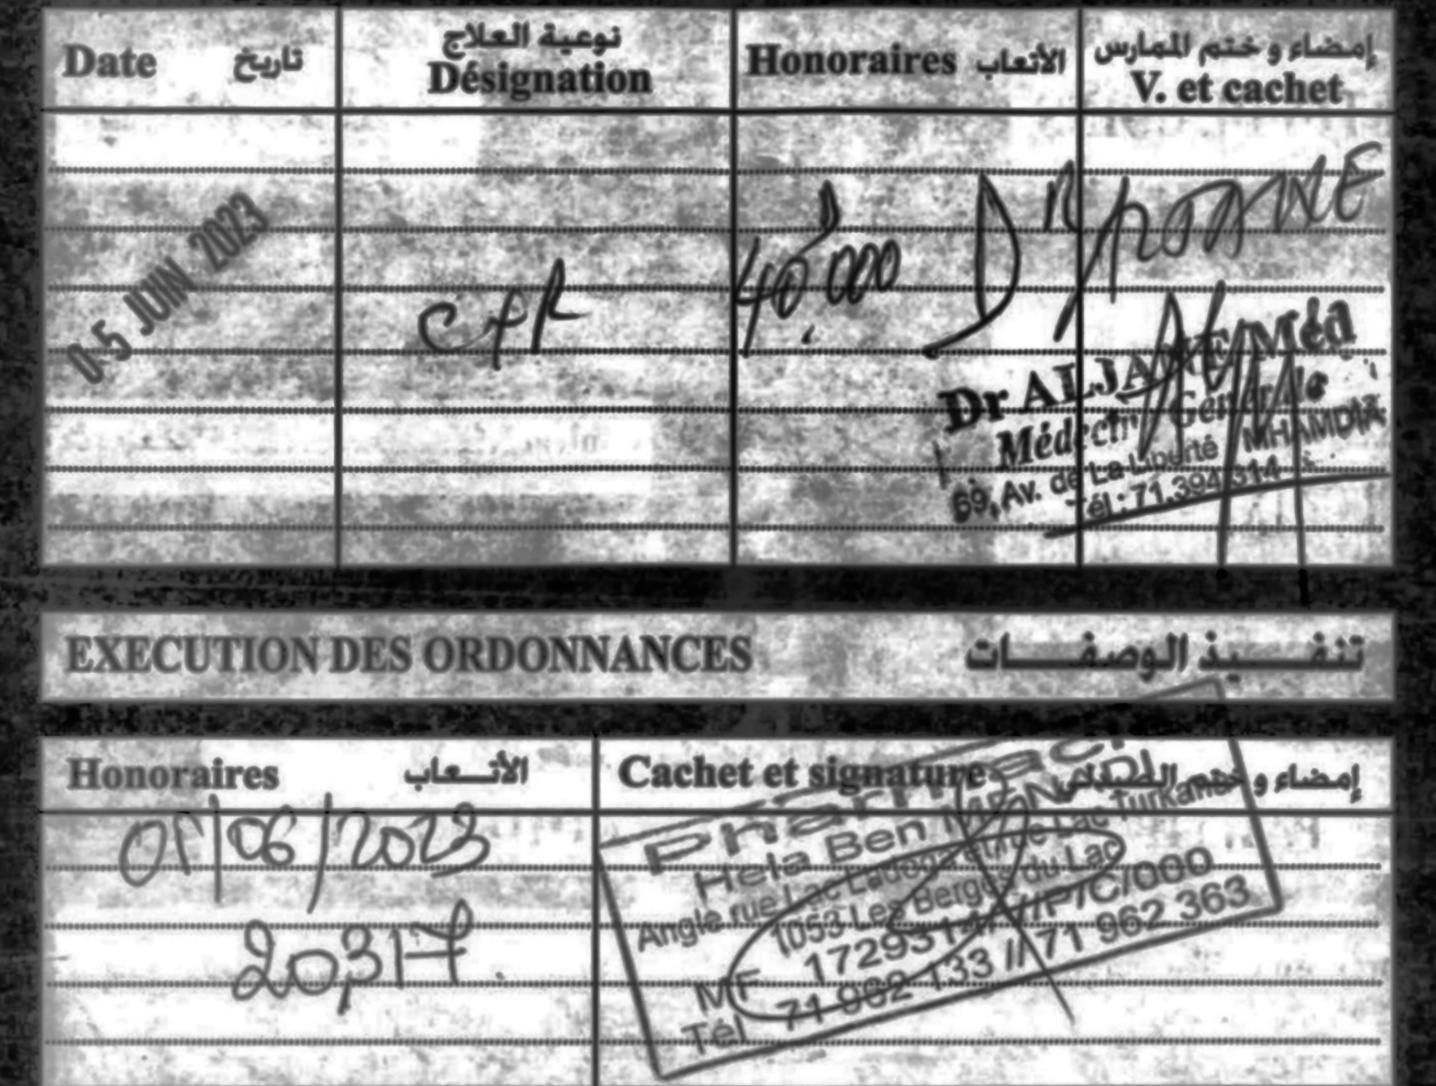 Date تاريخ نوعية العلاج Désignation Honoraires الأتعاب إمضاء و ختم الممارس V. et cachet
05 JUIN 2023
40.000
Dr
Dr ALJANE Méd
Médecin Générale
69, Av. de La Liberté MHAMDIA
Tél : 71.394.314
EXECUTION DES ORDONNANCES تنفيذ الوصفات
Honoraires الأتعاب Cachet et signature إمضاء و ختم الصيدلي
05/06/2023
20,317
Pharmacie
Hela Ben
Angle rue Lac Ladoga et rue Lac Turkana
1053 Les Berges du Lac
MF /P/C/000
Tél 71 962 133 // 71 962 363